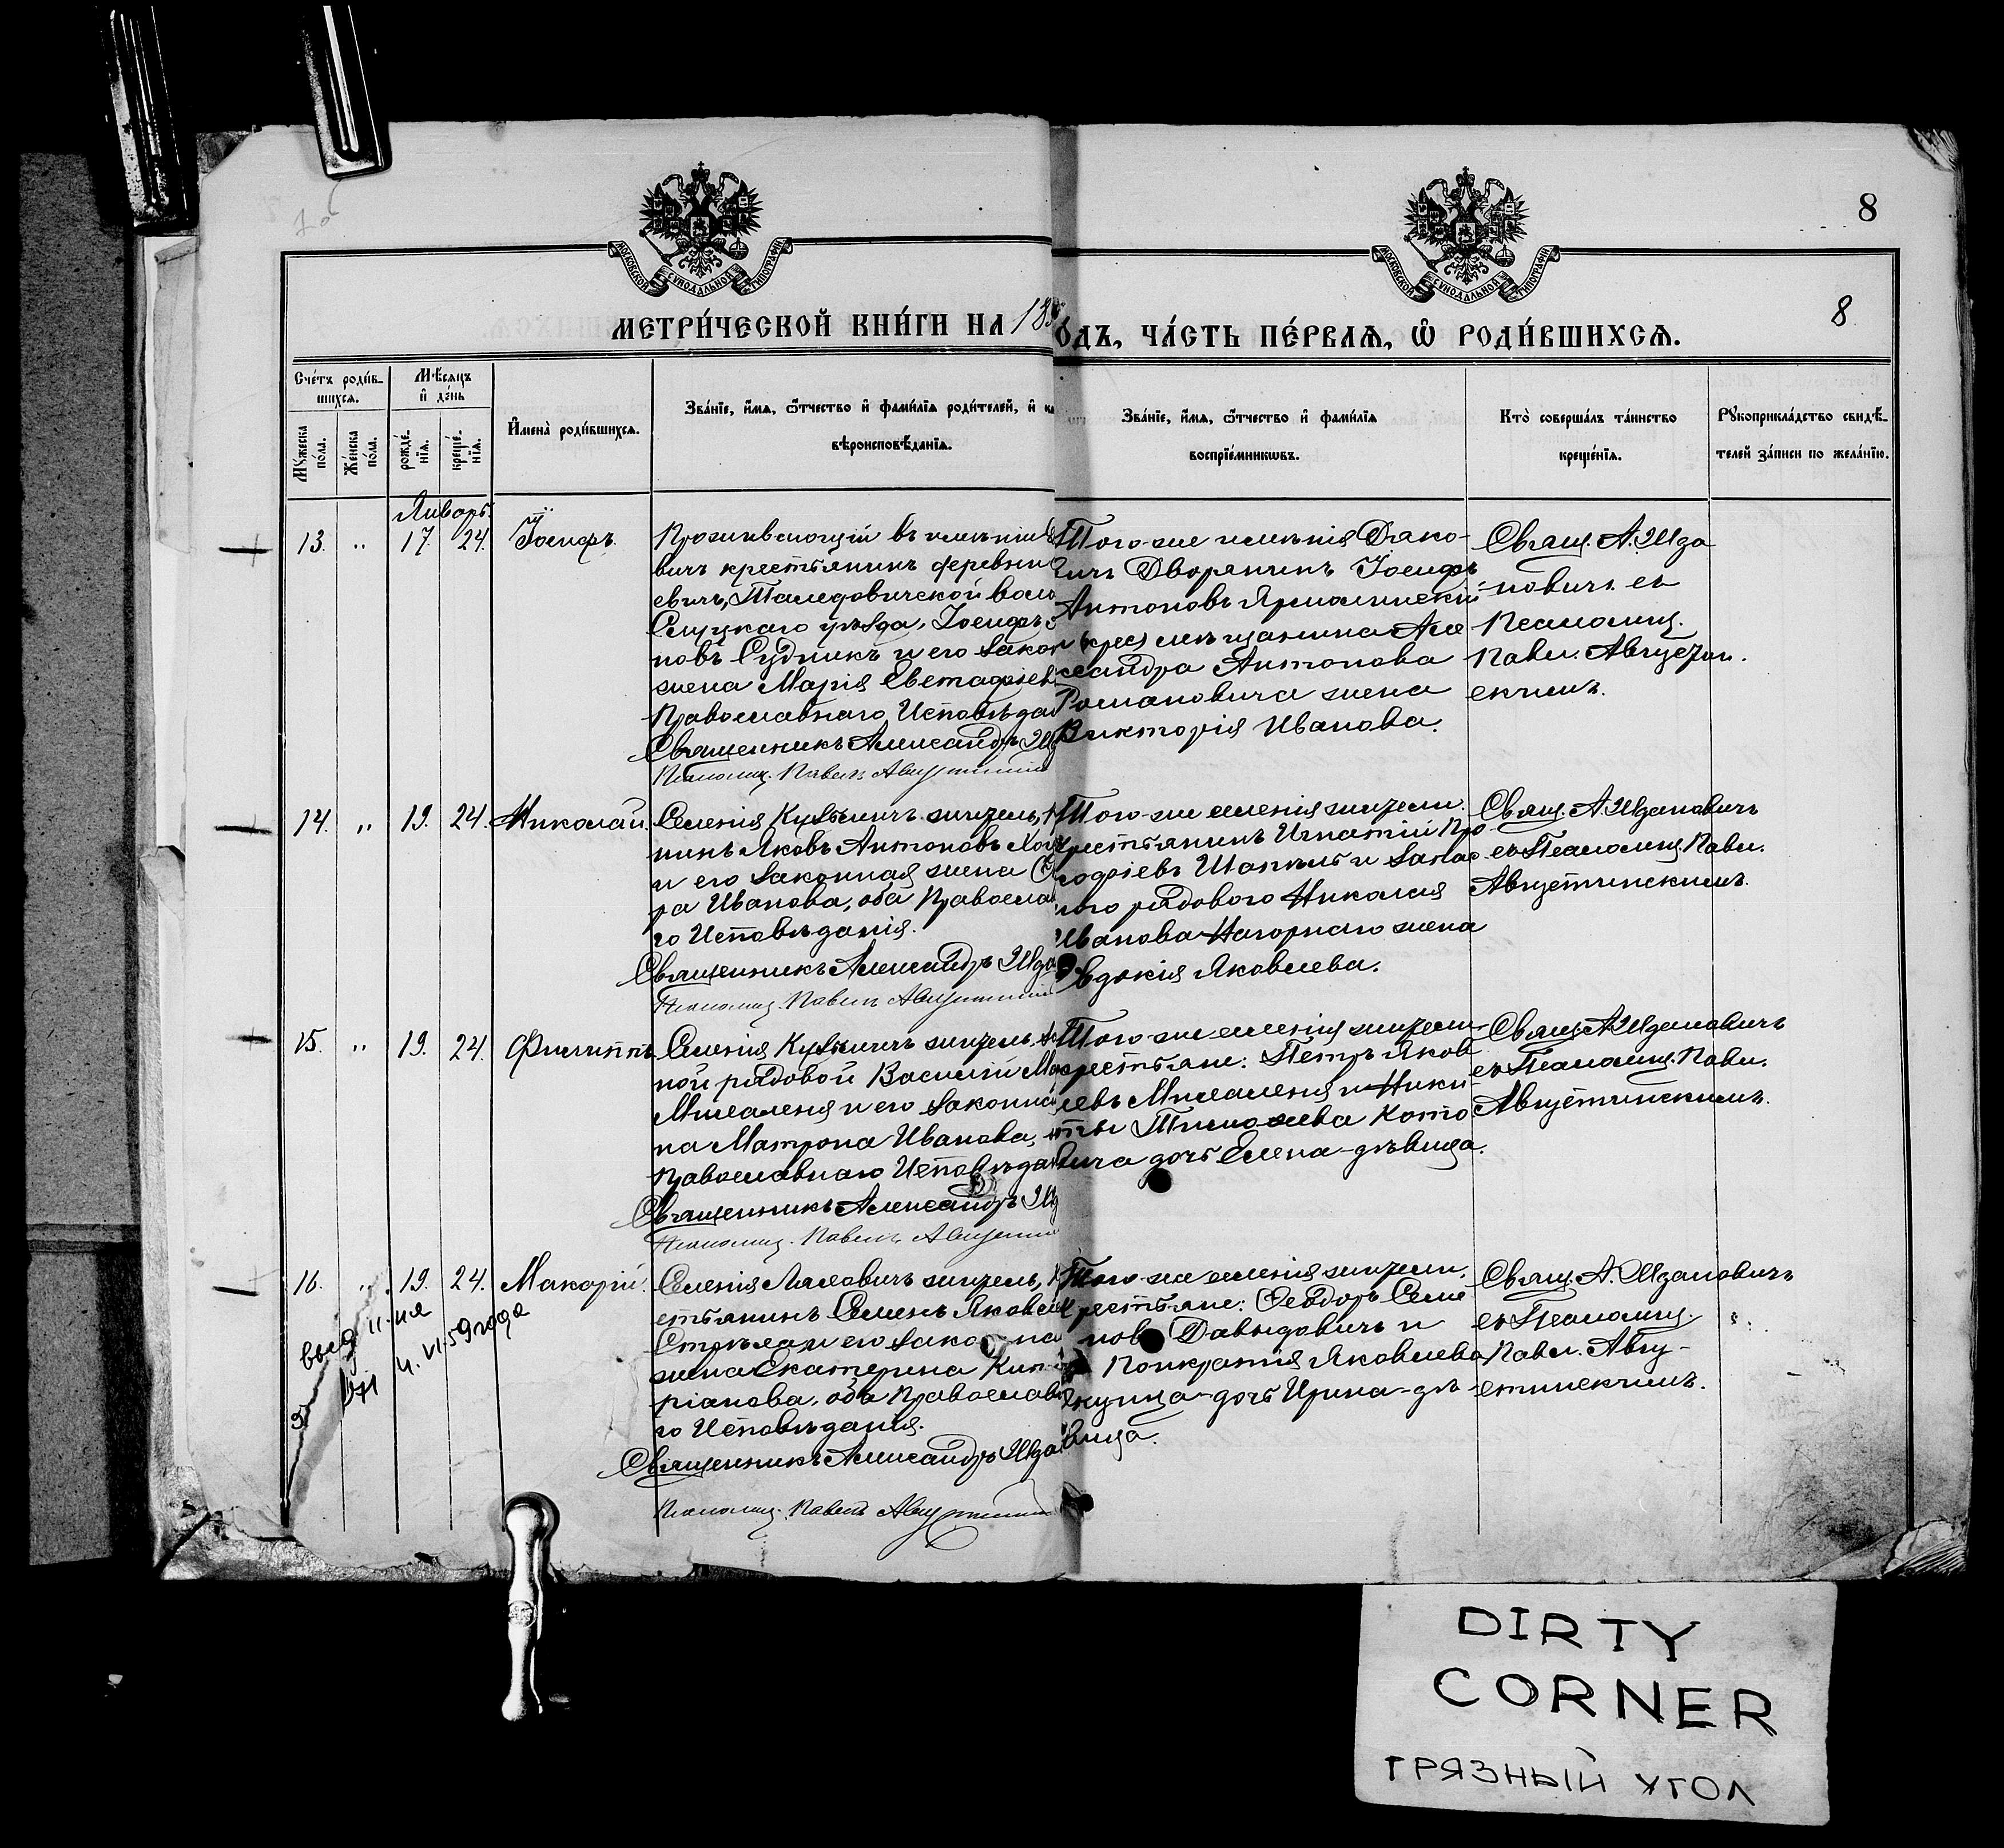 8
МОСКОВСКОЙ СУНОДАЛЬНОЙ ТИПОГРАФІИ
МОСКОВСКОЙ СУНОДАЛЬНОЙ ТИПОГРАФІИ
8
МЕТРИ́ЧЕСКОЙ КНИ́ГИ НА 18
О́ДЪ, ЧА́СТЬ ПЕ́РВАѦ, Ѡ҆ РОДИ́ВШИХСѦ.
Сче́тъ роди́в-
шихсѧ.
Мꙋ́жеска по́ла.
Же́нска по́ла.
Мѣ́сѧцъ
и҆ де́нь
рожде́-
нїѧ.
креще́-
нїѧ.
И҆мена̀ роди́вшихсѧ.
Зва́нїе, и҆́мѧ, ѻ҆́тчество и҆ фами́лїѧ роди́телей, и҆ ка
вѣроисповѣ́данїѧ.
Зва́нїе, и҆́мѧ, ѻ҆́тчество и҆ фами́лїѧ
воспрїе́мникѡвъ.
Кто̀ соверша́лъ та́инство
креще́нїѧ.
Рꙋкоприкла́дство свидѣ́-
телей за́писи по жела́нїю.
Январь.
13. „ 17. 24. Іосифъ.
Проживающій въ имѣніи
вичъ крестьянинъ деревни
евичъ, Таледовичской воло
Слуцкаго уѣзда, Іосифъ
новъ Судникъ и его закон
жена Марія Евстафіев
Православнаго Исповѣдан
Священникъ Александръ
Псаломщ. Павелъ Августинскій
Того-же имѣнія Дяко-
вичъ Дворянинъ Іосифъ
Антоновъ Ярмолинскій
и (крес) мѣщанина Але
ксандра Антонова
Романовича жена
Викторія Иванова.
Свящ. А. Жда
новичъ съ
Псаломщ.
Павл. Августин.
скимъ.
14. „ 19. 24. Николай.
Селенія Кузьмичъ житель, К
нинъ Яковъ Антоновъ
и его законная жена
ра Иванова, оба Православ
го Исповѣданія.
Священникъ Александръ Жда
Псаломщ. Павелъ Августинскій
Того-же селенія жители.
крестьянинъ Игнатій Про
кофіевъ Шапель и запас
ного рядового Николая
Иванова Нагорнаго жена
Евдокія Яковлева.
Свящ. А. Ждановичъ
съ Псаломщ. Павл.
Августинскимъ.
15. „ 19. 24. Филиппъ.
Селенія Кузьмичъ житель, за
ной рядовой Василій
Мигаленя и его законна
на Матрона Иванова,
Православнаго Исповѣдан
Священникъ Александръ Жд
Псаломщ. Павелъ Августин
Того-же селенія жители
крестьяне: Петръ Яков
левъ Мигаленя и Ники
ты Тимофеева Кото
вича дочь Елена-дѣвица.
Свящ. А. Ждановичъ
съ Псаломщ. Павл.
Августинскимъ.
16. „ 19. 24. Макарій.
Селенія Ляховичъ житель, К
стьянинъ Семенъ Яковле
Стрѣла и его законна
жена Екатерина Кип
ріанова, оба Православн
го Исповѣданія.
Священникъ Александръ Жда
Псаломщ. Павелъ Августинск
Того-же селенія жители.
Крестьяне: Ѳеодоръ Семе
новъ Давыдовичъ и
Понкратія Яковлева
дочь Ирина-дѣ
вица.
Свящ. А. Ждановичъ
съ Псаломщ.
Павл. Авгу-
стинскимъ.
4. VI. 59 года
DIRTY
CORNER
ГРЯЗНЫЙ УГОЛ